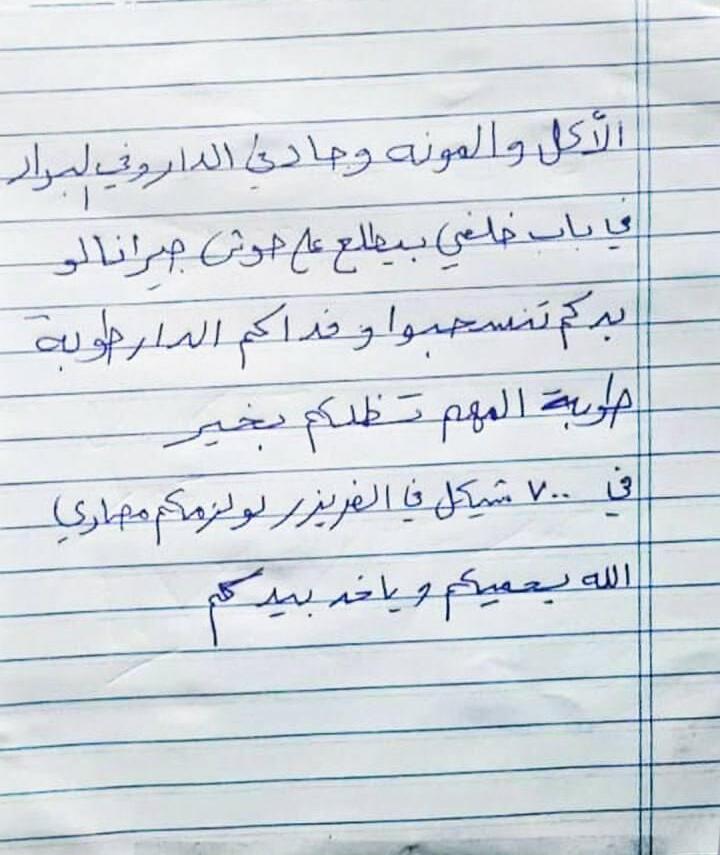 الأكل والمونه وجاد في الدار وفي البراد
في باب خلفي بيطلع على حوش جيرانا لو
بدكم تنسحبوا وفداكم الدار طوبة
طوبة المهم تظلكم بخير
في ٧٠٠ شيكل في الفريزر لو لزمكم مصاري
الله يحميكم وياخد بيدكم